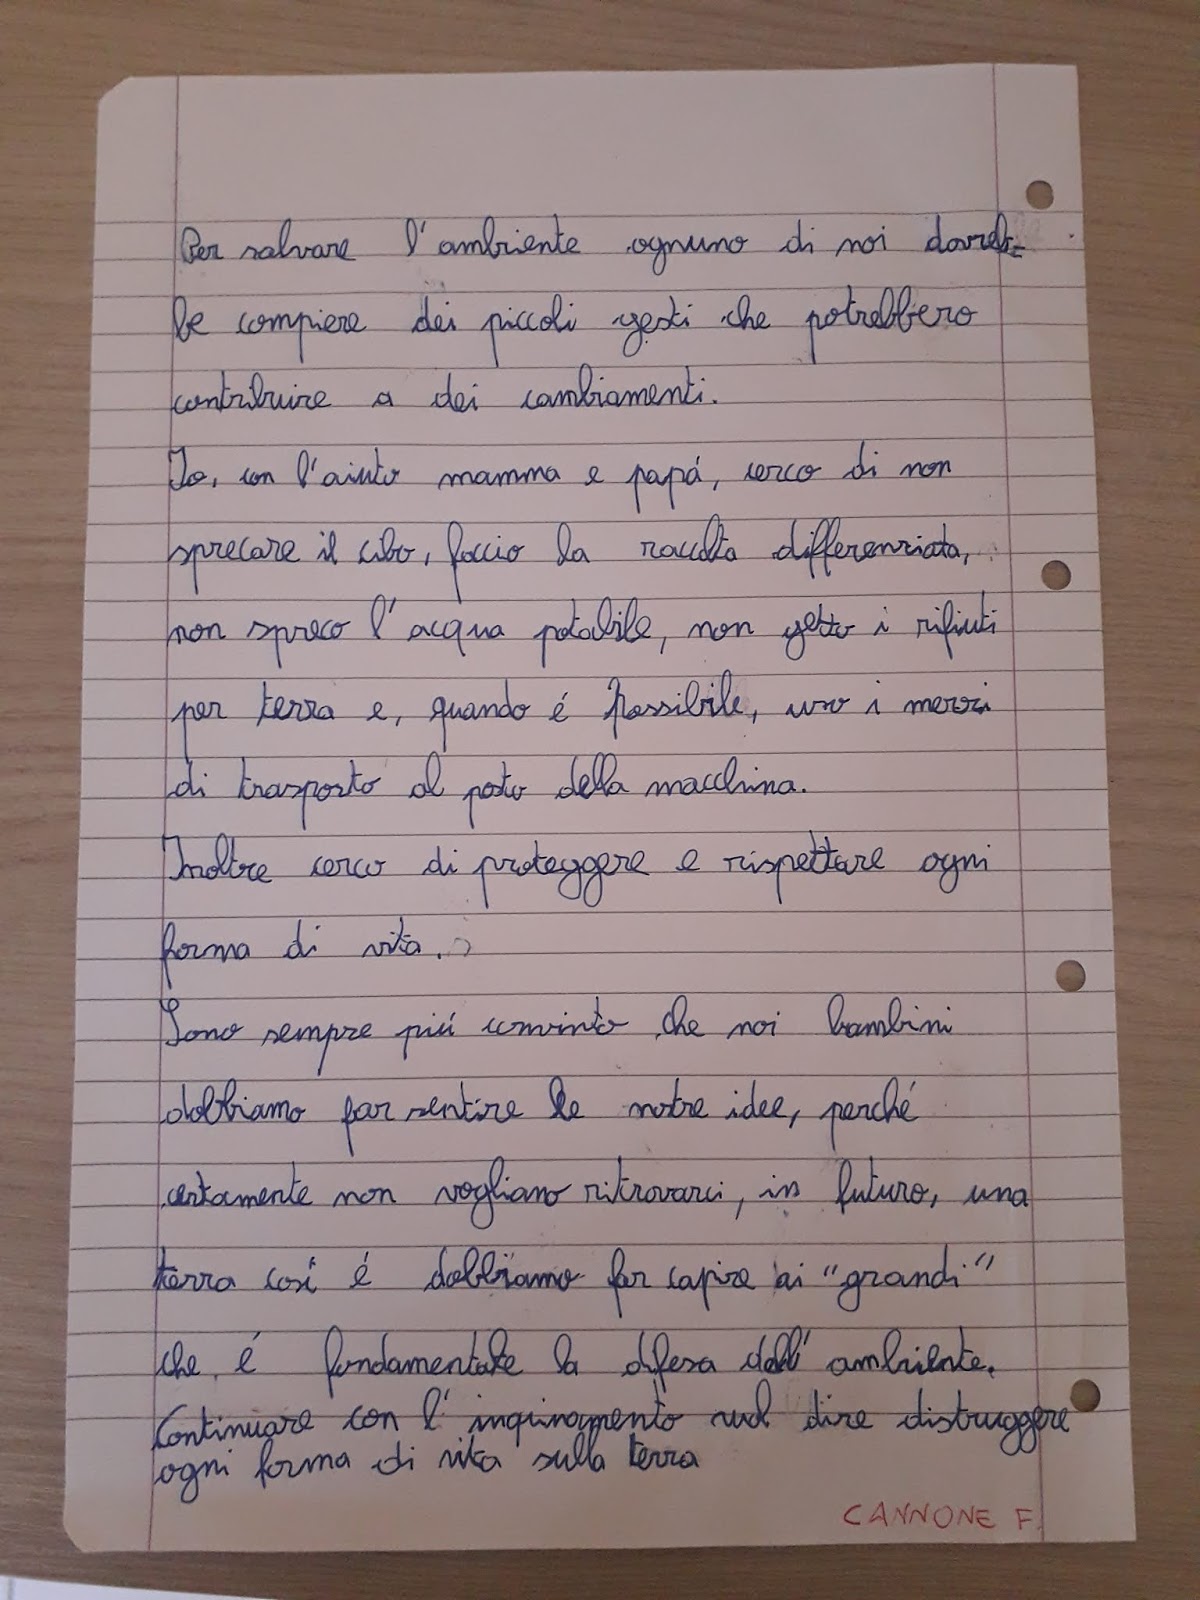 Per salvare l'ambiente ognuno di noi dovreb=
be compiere dei piccoli gesti che potrebbero
contribuire a dei cambiamenti.
Io, con l'aiuto mamma e papá, cerco di non
sprecare il cibo, faccio la raccolta differenziata,
non spreco l'acqua potabile, non getto i rifiuti
per terra e, quando é possibile, uso i mezzi
di trasporto al posto della macchina.
Inoltre cerco di proteggere e rispettare ogni
forma di vita.
Sono sempre piú convinto che noi bambini
dobbiamo far sentire le nostre idee, perché
certamente non vogliamo ritrovarci, in futuro, una
terra cosí é dobbiamo far capire ai "grandi"
che é fondamentale la difesa dell'ambiente.
Continuare con l'inquinamento vuol dire distruggere
ogni forma di vita sulla terra
CANNONE F.